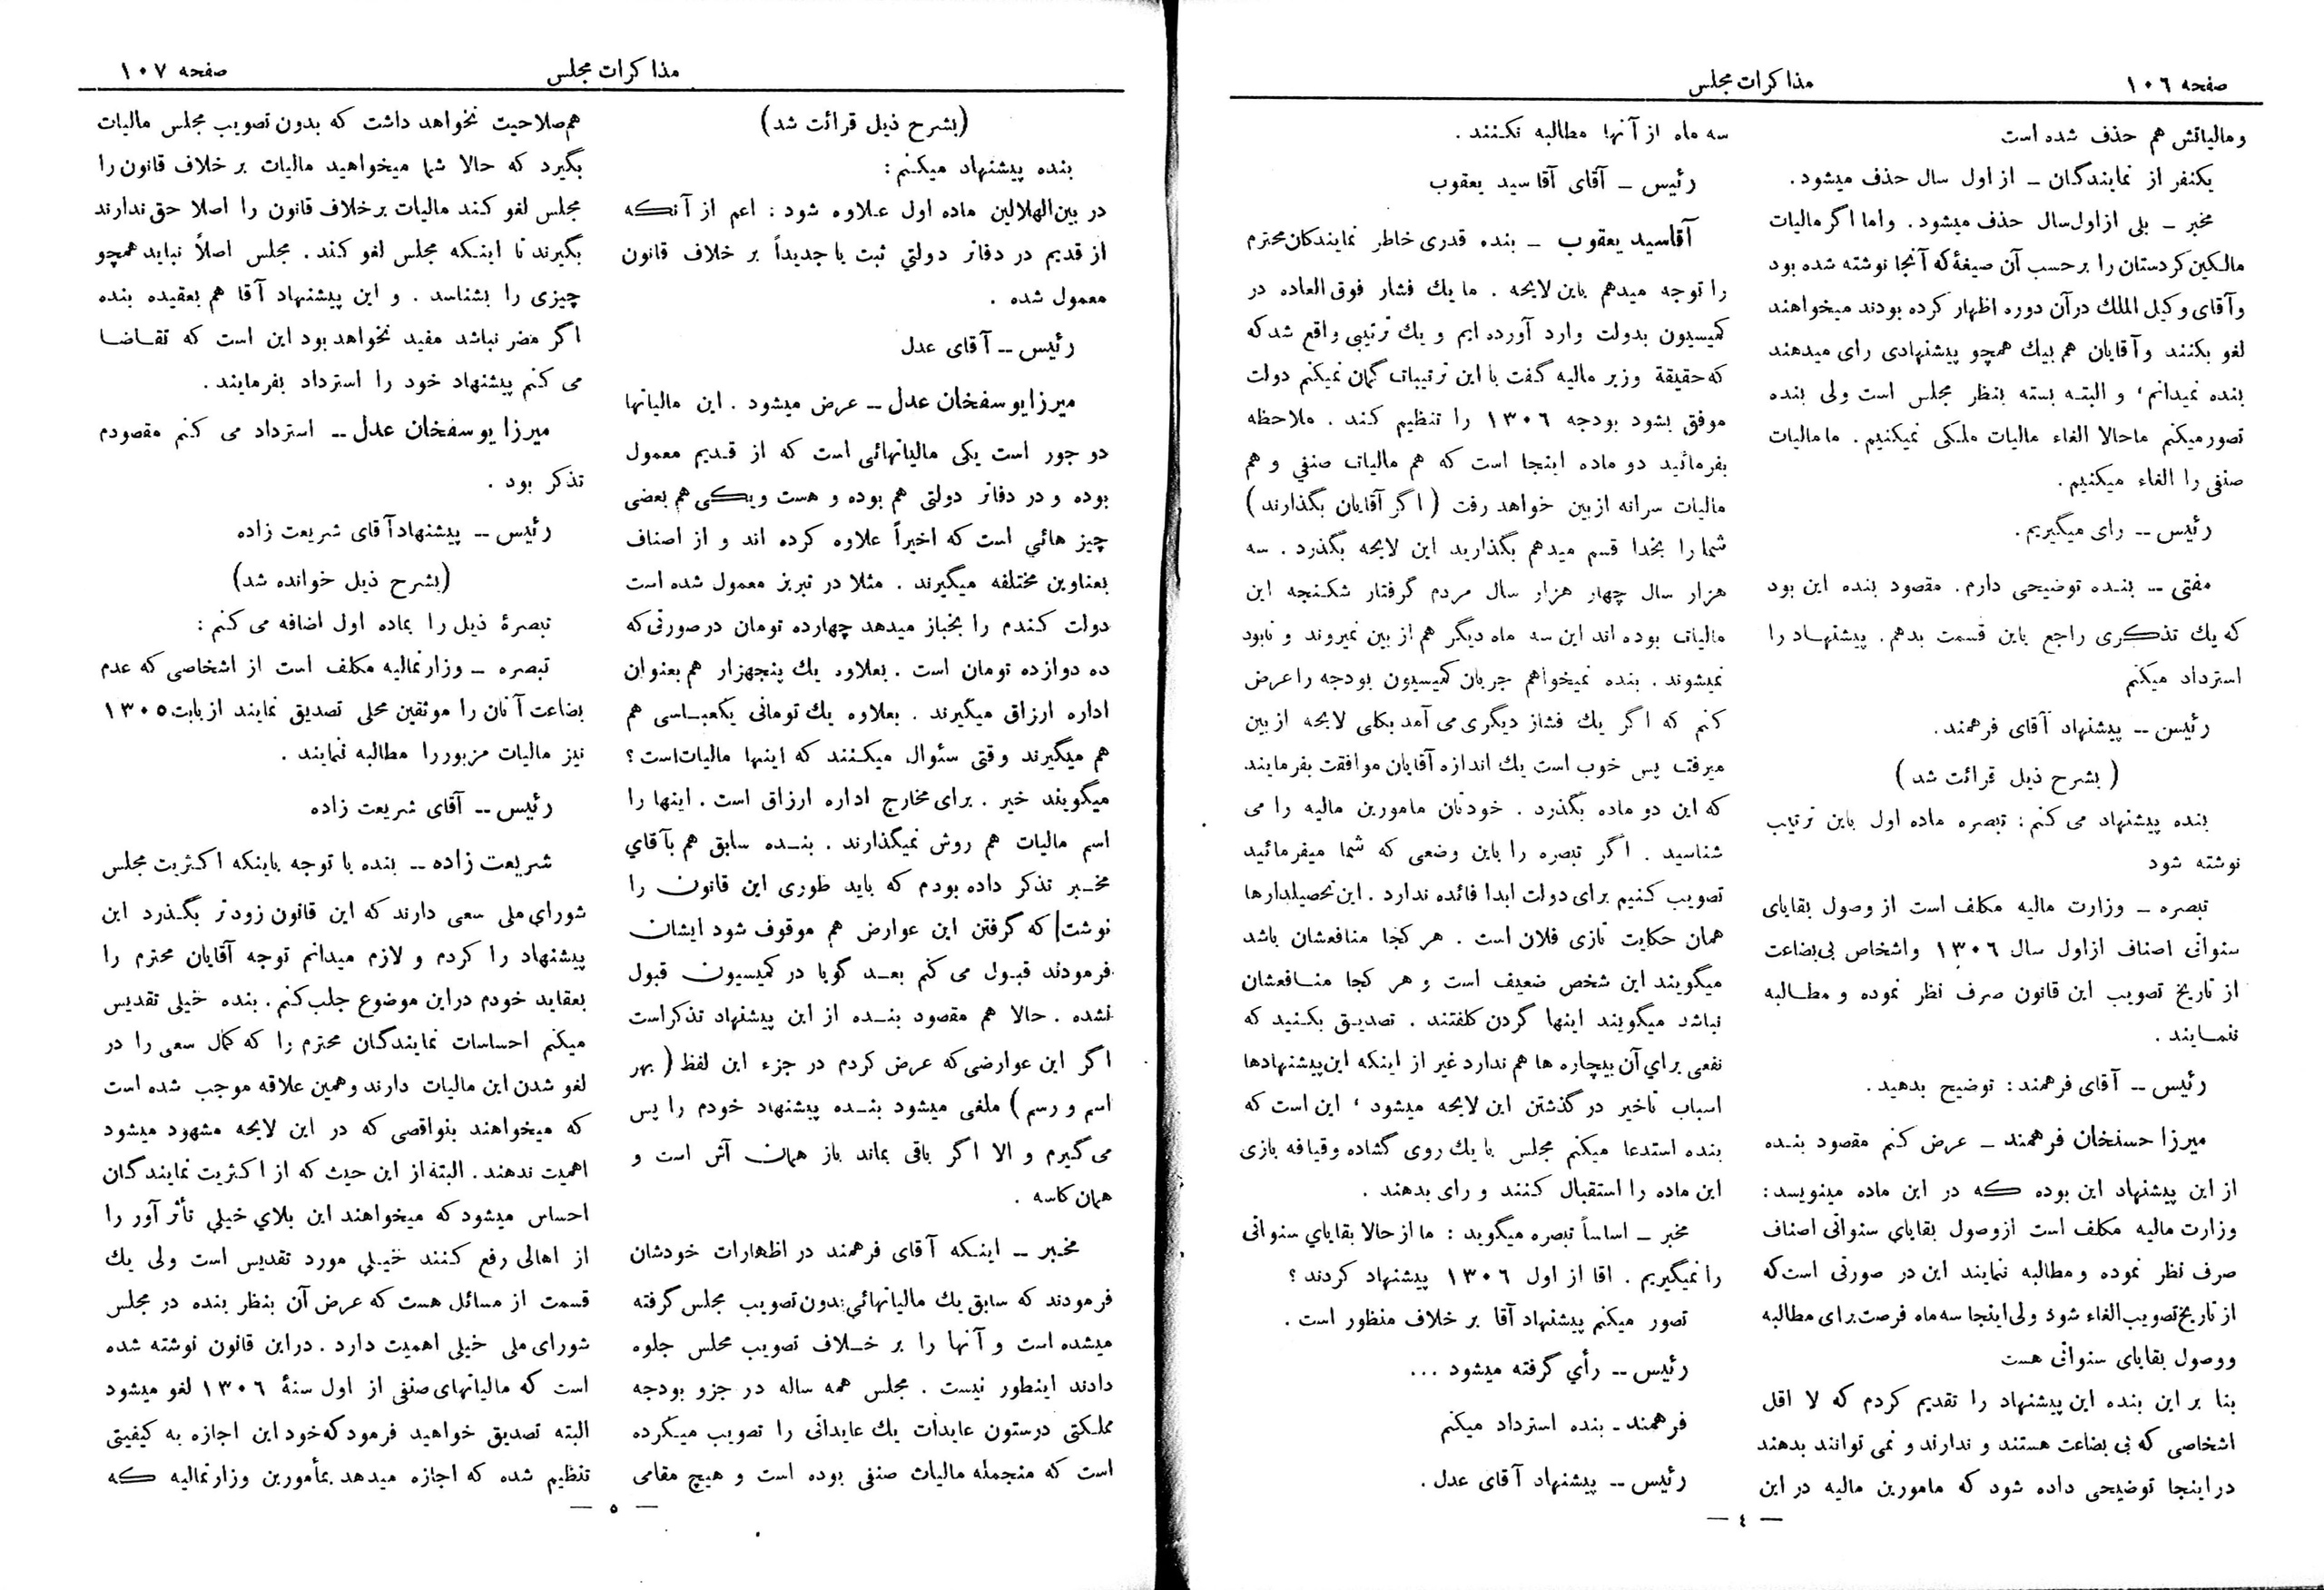 صفحه ۱۰۶
مذاکرات مجلس
ومالیاتش هم حذف شده است
یکنفر از نمایندگان ــ از اول سال حذف میشود.
مخبر ــ بلی از اول سال حذف میشود. واما اگر مالیات
مالکین کردستان را بر حسب آن صیغهٔ که آنجا نوشته شده بود
و آقای وکیل الملك در آن دوره اظهار کرده بودند میخواهند
لغو بکنند و آقایان هم بیك همچو پیشنهادی رای میدهند
بنده نمیدانم، و البته بسته بنظر مجلس است ولی بنده
تصور میکنم ما حالا الغاء مالیات ملکی نمیکنیم. ما مالیات
صنفی را الغاء میکنیم.
رئیس ــ رای میگیریم.
مفتی ــ بنده توضیحی دارم. مقصود بنده این بود
که یك تذکری راجع باین قسمت بدهم. پیشنهاد را
استرداد میکنم
رئیس ــ پیشنهاد آقای فرهمند.
( بشرح ذیل قرائت شد )
بنده پیشنهاد می کنم: تبصره ماده اول باین ترتیب
نوشته شود
تبصره ــ وزارت مالیه مکلف است از وصول بقایای
سنواتی اصناف ازاول سال ۱۳۰۶ واشخاص بی‌بضاعت
از تاریخ تصویب این قانون صرف نظر نموده و مطالبه
ننمایند .
رئیس ــ آقای فرهمند: توضیح بدهید.
میرزا حسنخان فرهمند ــ عرض کنم مقصود بنده
از این پیشنهاد این بوده که در این ماده مینویسد:
وزارت مالیه مکلف است ازوصول بقایای سنواتی اصناف
صرف نظر نموده و مطالبه ننمایند این در صورتی است که
از تاریخ تصویب الغاء شود ولی اینجا سه ماه فرصت برای مطالبه
ووصول بقایای سنواتی هست
بنا بر این بنده این پیشنهاد را تقدیم کردم که لا اقل
اشخاصی که بی بضاعت هستند و ندارند و نمی توانند بدهند
در اینجا توضیحی داده شود که مامورین مالیه در این
سه ماه از آنها مطالبه نکنند .
رئیس ــ آقای آقا سید یعقوب
آقاسید یعقوب ــ بنده قدری خاطر نمایندکان محترم
را توجه میدهم باین لایحه . ما یك فشار فوق العاده در
کمیسیون بدولت وارد آورده ایم و یك ترتیبی واقع شد که
که حقیقة وزیر مالیه گفت با این ترتیبات گمان نمیکنم دولت
موفق بشود بودجه ۱۳۰۶ را تنظیم کند . ملاحظه
بفرمائید دو ماده اینجا است که هم مالیات صنفی و هم
مالیات سرانه از بین خواهد رفت ( اگر آقایان بگذارند )
شما را بخدا قسم میدهم بگذارید این لایحه بگذرد . سه
هزار سال چهار هزار سال مردم گرفتار شکنجه این
مالیات بوده اند این سه ماه دیگر هم از بین نمیروند و نابود
نمیشوند . بنده نمیخواهم جریان کمیسیون بودجه را عرض
کنم که اگر یك فشار دیگری می آمد بکلی لایحه از بین
میرفت پس خوب است یك اندازه آقایان موافقت بفرمایند
که این دو ماده بگذرد . خودتان مامورین مالیه را می
شناسید . اگر تبصره را باین وضعی که شما میفرمائید
تصویب کنیم برای دولت ابدا فائده ندارد . این تحصیلدارها
همان حکایت تازی فلان است . هر کجا منافعشان باشد
میگویند این شخص ضعیف است و هر کجا منافعشان
نباشد میگویند اینها گردن کلفتند . تصدیق بکنید که
نفعی براي آن بیچاره ها هم ندارد غیر از اینکه این پیشنهادها
اسباب تاخیر در گذشتن این لایحه میشود ، این است که
بنده استدعا میکنم مجلس با یك روی گشاده و قیافه بازی
این ماده را استقبال کنند و رای بدهند .
مخبر ــ اساساً تبصره میگوید : ما از حالا بقایاي سنواتی
را نمیگیریم . اقا از اول ۱۳۰۶ پیشنهاد کردند ؟
تصور میکنم پیشنهاد آقا بر خلاف منظور است .
رئیس ــ رأي گرفته میشود ...
فرهمند ـ بنده استرداد میکنم
رئیس ــ پیشنهاد آقای عدل .
— ٤ —
مذاکرات مجلس
صفحه ۱۰۷
(بشرح ذیل قرائت شد)
بنده پیشنهاد میکنم:
در بین الهلالین ماده اول علاوه شود : اعم از آنکه
از قدیم در دفاتر دولتي ثبت یا جدیداً بر خلاف قانون
معمول شده .
رئیس ــ آقای عدل
میرزا یوسفخان عدل ــ عرض میشود . این مالیاتها
دو جور است یکی مالیاتهائی است که از قدیم معمول
بوده و در دفاتر دولتی هم بوده و هست و یکی هم بعضی
چیز هائي است که اخیراً علاوه کرده اند و از اصناف
بعناوین مختلفه میگیرند . مثلا در تبریز معمول شده است
دولت کندم را بخباز میدهد چهارده تومان در صورتی که
ده دوازده تومان است . بعلاوه یك پنجهزار هم بعنوان
اداره ارزاق میگیرند . بعلاوه یك تومانی یکعباسی هم
هم میگیرند وقتی سئوال میکنند که اینها مالیات است ؟
میگویند خیر . برای مخارج اداره ارزاق است . اینها را
اسم مالیات هم روش نمیگذارند . بنده سابق هم بآقاي
مخبر تذکر داده بودم که باید طوری این قانون را
نوشت که گرفتن این عوارض هم موقوف شود ایشان
فرمودند قبول می کنم بعد گویا در کمیسیون قبول
نشده . حالا هم مقصود بنده از این پیشنهاد تذکر است
اگر این عوارضی که عرض کردم در جزء این لفظ ( بهر
اسم و رسم ) ملغی میشود بنده پیشنهاد خودم را پس
می گیرم و الا اگر باقی بماند باز همان آش است و
همان کاسه .
مخبر ــ اینکه آقای فرهمند در اظهارات خودشان
فرمودند که سابق یك مالیاتهائي بدون تصویب مجلس گرفته
میشده است و آنها را بر خلاف تصویب مجلس جلوه
دادند اینطور نیست . مجلس همه ساله در جزو بودجه
مملکتی در ستون عایدات یك عایداتی را تصویب میکرده
است که منجمله مالیات صنفی بوده است و هیچ مقامی
هم صلاحیت نخواهد داشت که بدون تصویب مجلس مالیات
بگیرد که حالا شما میخواهید مالیات بر خلاف قانون را
مجلس لغو کند مالیات بر خلاف قانون را اصلا حق ندارند
بگیرند تا اینکه مجلس لغو کند . مجلس اصلاً نباید همچو
چیزی را بشناسد . و این پیشنهاد آقا هم بعقیده بنده
اگر مضر نباشد مفید نخواهد بود این است که تقاضا
می کنم پیشنهاد خود را استرداد بفرمایند.
میرزا یوسفخان عدل ــ استرداد می کنم مقصودم
تذکر بود .
رئیس ــ پیشنهاد آقای شریعت زاده
(بشرح ذیل خوانده شد)
تبصرهٔ ذیل را بماده اول اضافه می کنم :
تبصره ــ وزارتمالیه مکلف است از اشخاصی که عدم
بضاعت آنان را موثقین محلی تصدیق نمایند از بابت ۱۳۰۵
نیز مالیات مزبور را مطالبه ننمایند .
رئیس ــ آقای شریعت زاده
شریعت زاده ــ بنده با توجه باینکه اکثریت مجلس
شورای ملی سعی دارند که این قانون زودتر بگذرد این
پیشنهاد را کردم و لازم میدانم توجه آقایان محترم را
بعقاید خودم در این موضوع جلب کنم . بنده خیلی تقدیس
میکنم احساسات نمایندگان محترم را که کمال سعی را در
لغو شدن این مالیات دارند و همین علاقه موجب شده است
که میخواهند بنواقصی که در این لایحه مشهود میشود
اهمیت ندهند . البته از این حیث که از اکثریت نمایندگان
احساس میشود که میخواهند این بلاي خیلي تأثر آور را
از اهالی رفع کنند خیلي مورد تقدیس است ولی یك
قسمت از مسائل هست که عرض آن بنظر بنده در مجلس
شورای ملی خیلی اهمیت دارد . در این قانون نوشته شده
است که مالیاتهای صنفی از اول سنهٔ ۱۳۰۶ لغو میشود
البته تصدیق خواهید فرمود که خود این اجازه به کیفیتی
تنظیم شده که اجازه میدهد بمأمورین وزارتمالیه که
— ۵ —